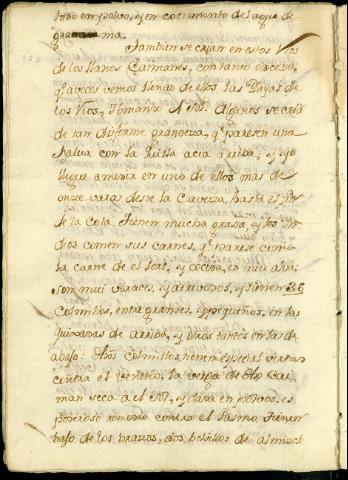 todo en polvo, ẏ en cocimiento del agua de
grama.
6. Tambien se crian en estos Rios
de los llanos Caimanes, con tanto exceso,
q.e a veces vemos llenas de ellos las Playas de
los Rios, tomando el Sol. Algunos se crian
de tan disforme grandeza, q.e parecen una
falua con la quilla acia arriba, ẏ ẏo
llegue a medir en uno de ellos mas de
onze varas desde la Caveza, hasta el fin
de la Cola, tienen mucha grasa, ẏ los In-
dios comen sus carnes, q.e parese como
la carne de el , ẏ cocida, es mui
son mui voraces, ẏ atrevidos, ẏ tienen 36
Colmillos, entre grandes, ẏ pequeños, en las
quixadas de arriba, ẏ otros tantos en las de
abajo. Dhos Colmillos tienen especial virtud
contra el veneno. la verga de dho Cai-
man seca a el Sol, ẏ dada en polvos, es
poderoso remedio contra el Pasmo, tienen
bajo de los brazos, dos bolsillos de almizcle